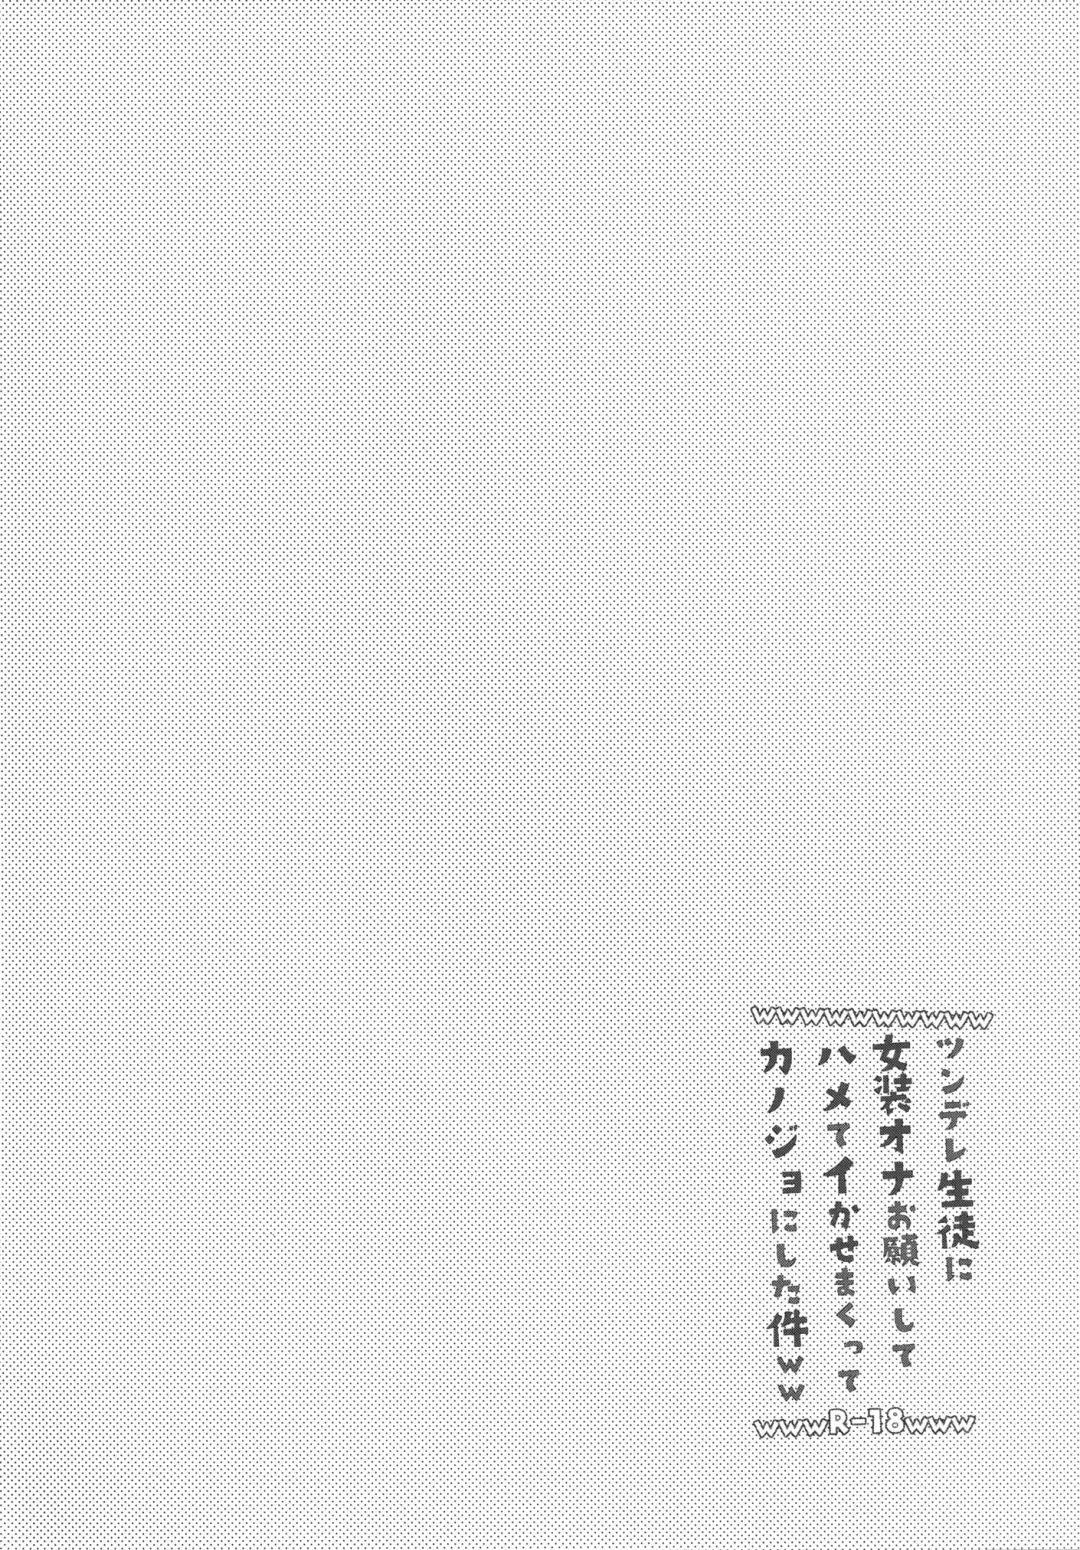 wwwwwwwwww
ツンデレ生徒に
女装オナお願いして
ハメてイかせまくって
カノジョにした件ww
wwwR-18www